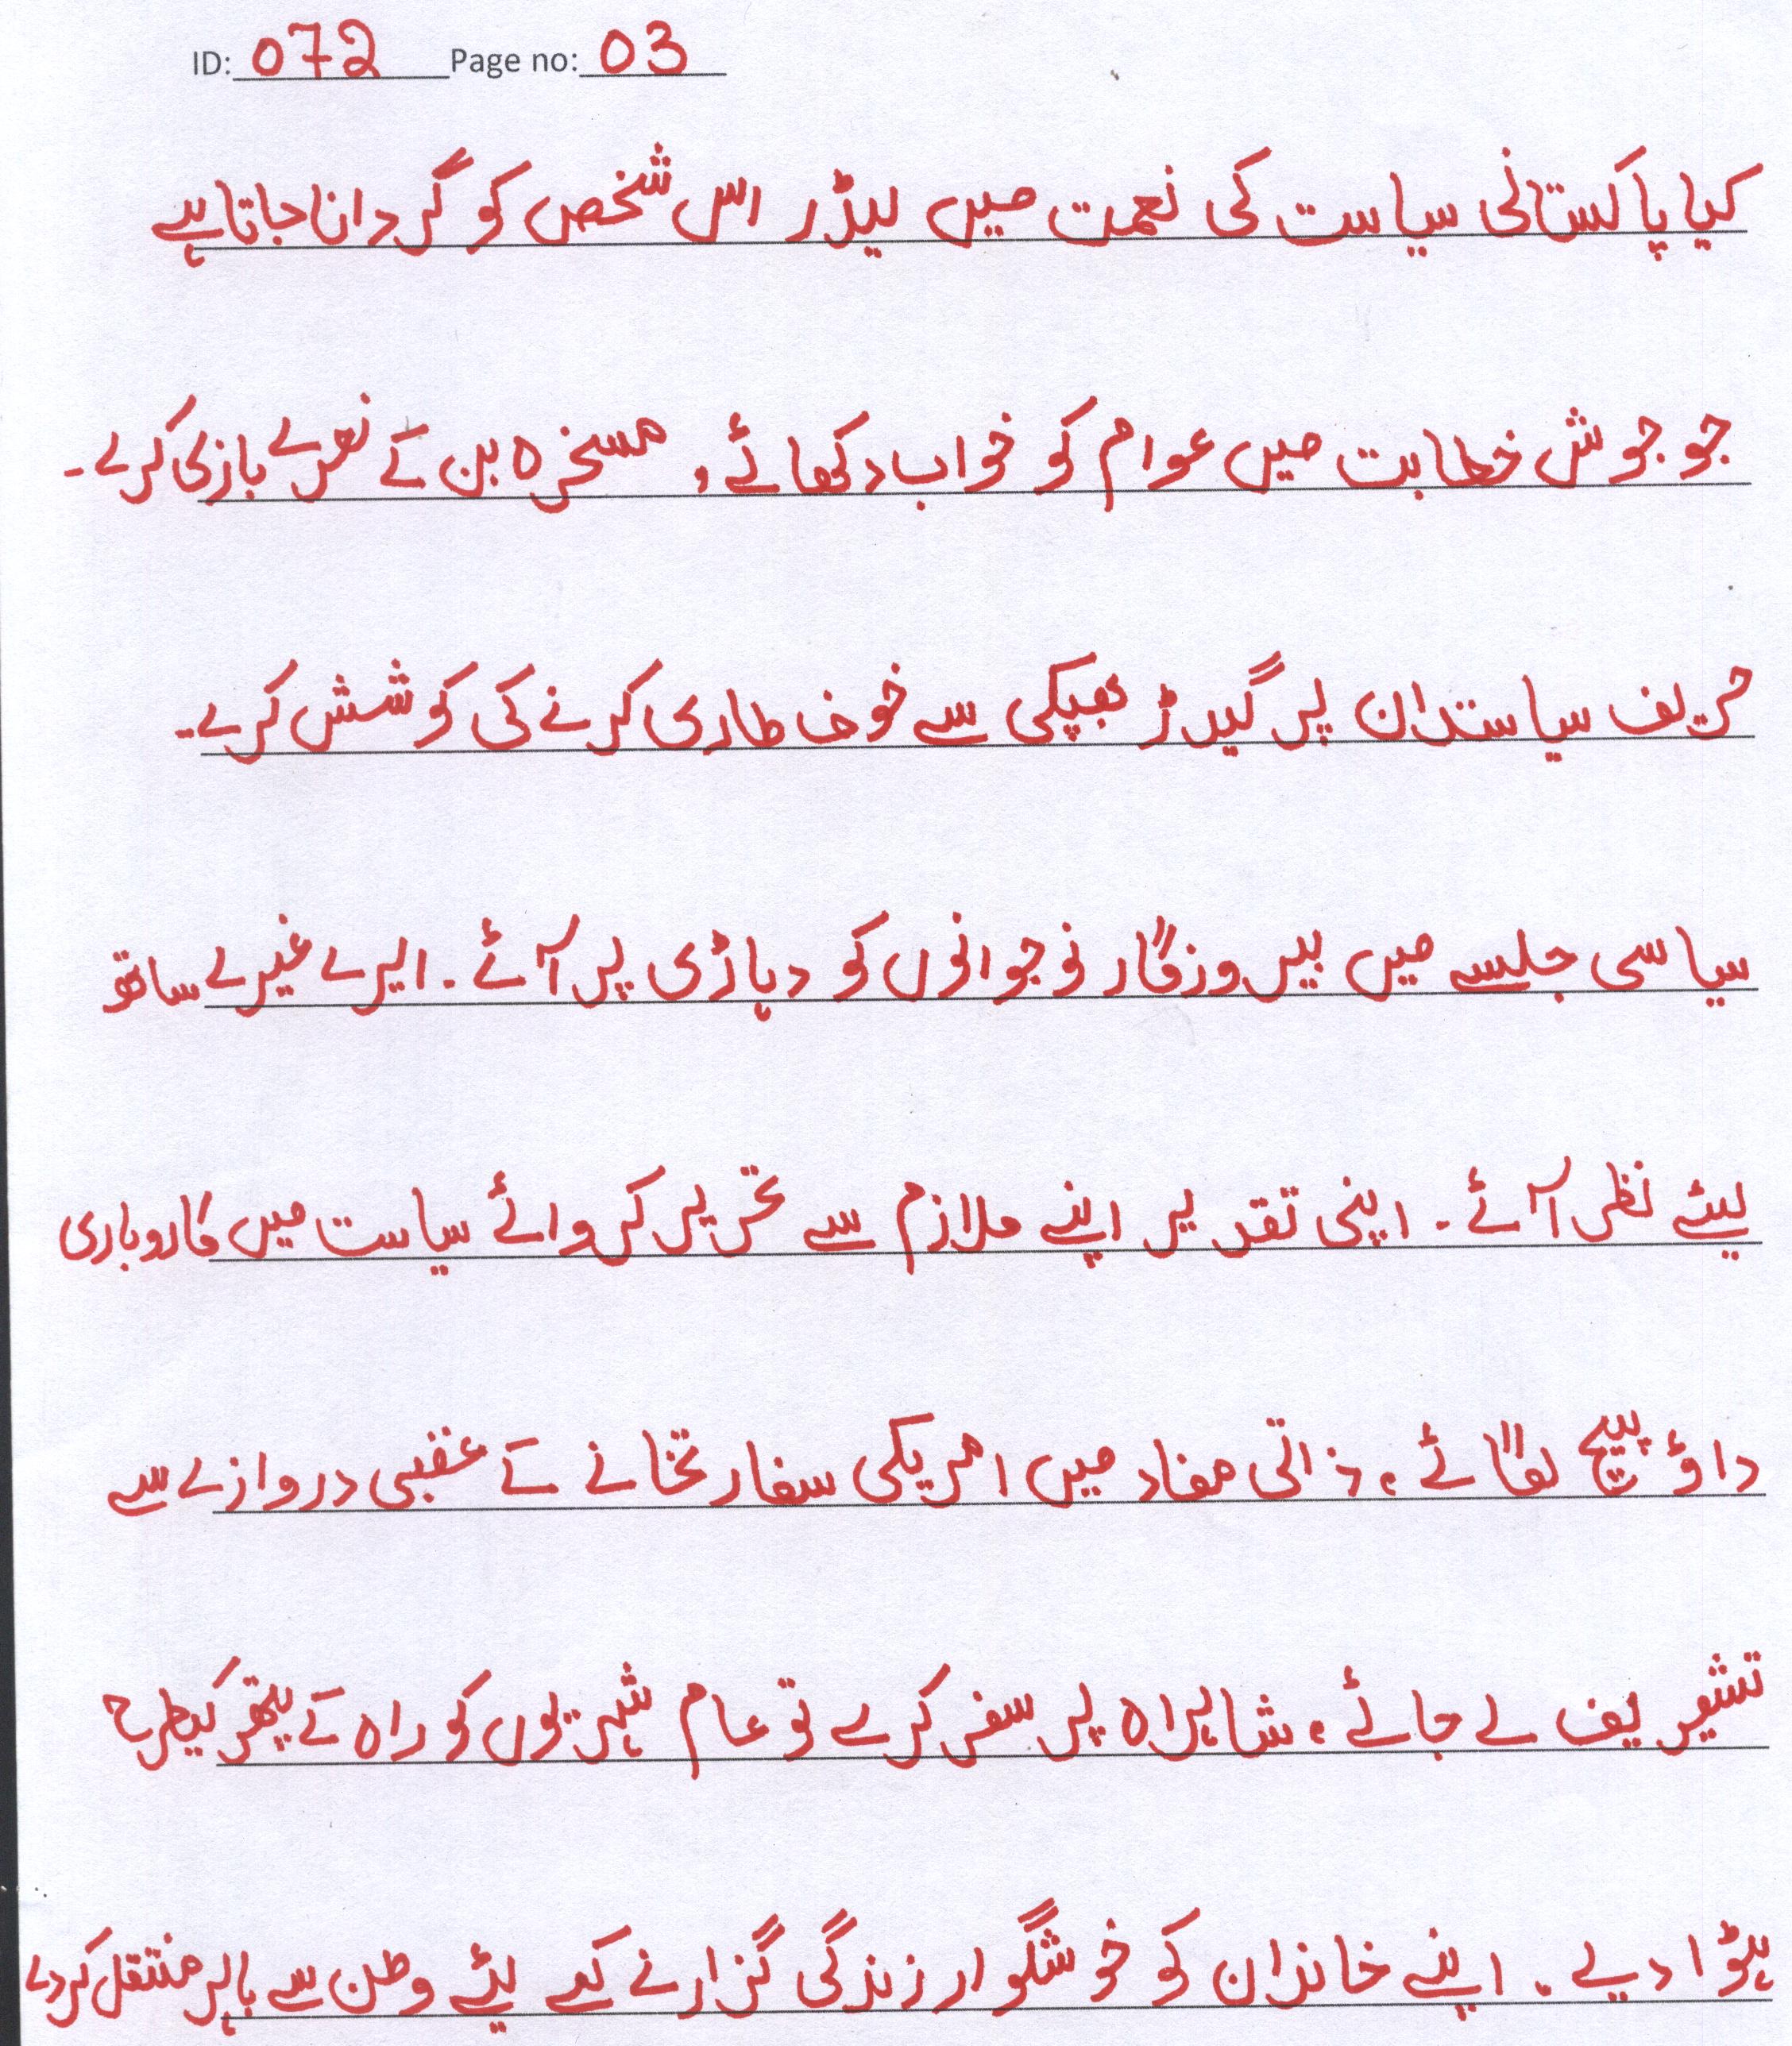 ID: 072 Page no: 03
کیا پاکستانی سیاست کی نعمت میں لیڈر اس شخص کو گردانا جاتا ہے
جو جوش خطابت میں عوام کو خواب دکھائے، مسخرہ بن کے نعرے بازی کرے۔
حریف سیاستدان پر گیدڑ بھپکی سے خوف طاری کرنے کی کوشش کرے۔
سیاسی جلسے میں بیروزگار نوجوانوں کو دہاڑی پر آئے۔ ایرے غیرے ساتھ
لیئے نظر آئے۔ اپنی تقدیر اپنے ملازم سے تحریر کروائے سیاست میں کاروباری
داؤ پیچ لگائے، ذاتی مفاد میں امریکی سفارتخانے کے عقبی دروازے سے
تشریف لے جائے، شاہراہ پر سفر کرے تو عام شہریوں کو راہ کے پتھر کیطرح
ہٹوا دیے۔ اپنے خاندان کو خوشگوار زندگی گزارنے کے لیئے وطن سے باہر منتقل کردے